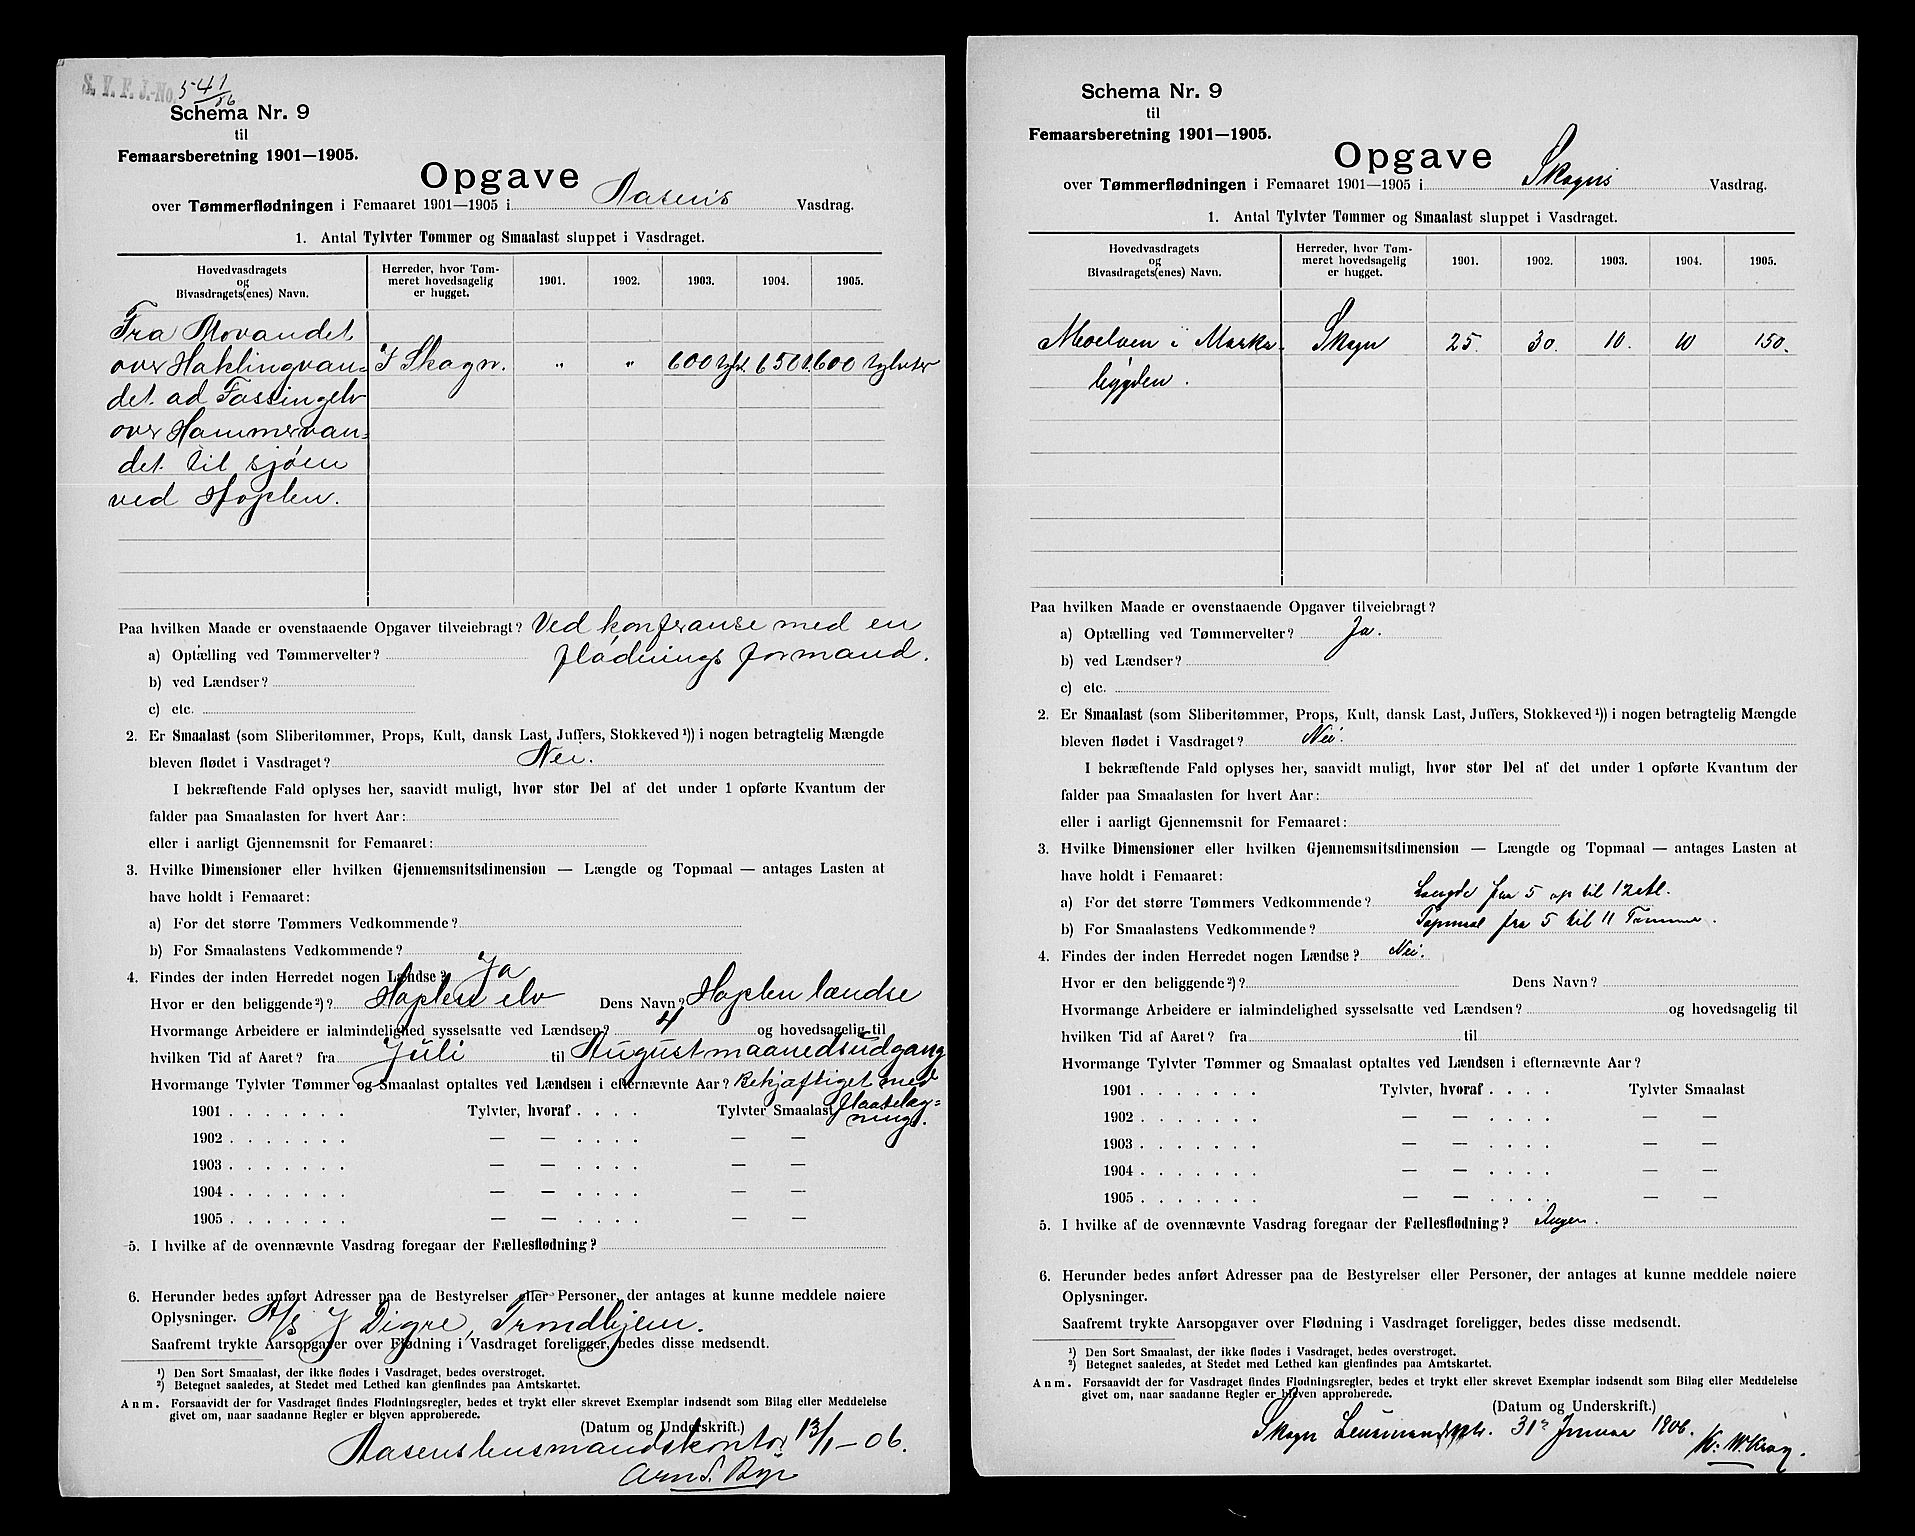 S. V. F. J.-No. 541/06
Schema Nr. 9
til
Femaarsberetning 1901—1905.
Opgave
over Tømmerflødningen i Femaaret 1901—1905 i Aasens Vasdrag.
1. Antal Tylvter Tømmer og Smaalast sluppet i Vasdraget.
Hovedvasdragets og Bivasdragets(enes) Navn. Herreder, hvor Tømmeret hovedsagelig er hugget. 1901. 1902. 1903. 1904. 1905.
Fra Movandet
over Haklingvan= I Skogn. " " 600 tylvt. 650 t. 600 tylvter
det ad Fossingelv
over Hammervan=
det til sjøen
ved Hoplen.
Paa hvilken Maade er ovenstaaende Opgaver tilveiebragt? Ved konfranse med en
a) Optælling ved Tømmervelter? flødnings formand.
b) ved Lændser?
c) etc.
2. Er Smaalast (som Sliberitømmer, Props, Kult, dansk Last, Juffers, Stokkeved ¹)) i nogen betragtelig Mængde
bleven flødet i Vasdraget? Nei.
I bekræftende Fald oplyses her, saavidt muligt, hvor stor Del af det under 1 opførte Kvantum der
falder paa Smaalasten for hvert Aar:
eller i aarligt Gjennemsnit for Femaaret:
3. Hvilke Dimensioner eller hvilken Gjennemsnitsdimension — Længde og Topmaal — antages Lasten at
have holdt i Femaaret:
a) For det større Tømmers Vedkommende?
b) For Smaalastens Vedkommende?
4. Findes der inden Herredet nogen Lændse? Ja
Hvor er den beliggende²)? Hoplen elv Dens Navn? Hoplen lændse
Hvormange Arbeidere er ialmindelighed sysselsatte ved Lændsen? 4 og hovedsagelig til
hvilken Tid af Aaret? fra Juli til August maanedsudgang
Hvormange Tylvter Tømmer og Smaalast optaltes ved Lændsen i efternævnte Aar? Bekjæftiget med
1901 . . . . . . . Tylvter, hvoraf . . . . Tylvter Smaalast flaatelæg=
ning.
1902 . . . . . . . — — . . . . — —
1903 . . . . . . . — — . . . . — —
1904 . . . . . . . — — . . . . — —
1905 . . . . . . . — — . . . . — —
5. I hvilke af de ovennævnte Vasdrag foregaar der Fællesflødning?
6. Herunder bedes anført Adresser paa de Bestyrelser eller Personer, der antages at kunne meddele nøiere
Oplysninger. A/s J Digre, Trondhjem.
Saafremt trykte Aarsopgaver over Flødning i Vasdraget foreligger, bedes disse medsendt.
¹) Den Sort Smaalast, der ikke flødes i Vasdraget, bedes overstroget.
²) Betegnet saaledes, at Stedet med Lethed kan gjenfindes paa Amtskartet.
Anm. Forsaavidt der for Vasdraget findes Flødningsregler, bedes et trykt eller skrevet Exemplar indsendt som Bilag eller Meddelelse
givet om, naar saadanne Regler er bleven approberede.
(Datum og Underskrift.)
Aasens lensmandskontor 13/1 – 06.
Arn S. Rye
Schema Nr. 9
til
Femaarsberetning 1901—1905.
Opgave
over Tømmerflødningen i Femaaret 1901—1905 i Skogns Vasdrag.
1. Antal Tylvter Tømmer og Smaalast sluppet i Vasdraget.
Hovedvasdragets og Bivasdragets(enes) Navn. Herreder, hvor Tømmeret hovedsagelig er hugget. 1901. 1902. 1903. 1904. 1905.
Moelven i Marka- Skogn 25. 30. 10. 10 150.
bygden.
Paa hvilken Maade er ovenstaaende Opgaver tilveiebragt?
a) Optælling ved Tømmervelter? Ja.
b) ved Lændser?
c) etc.
2. Er Smaalast (som Sliberitømmer, Props, Kult, dansk Last, Juffers, Stokkeved ¹)) i nogen betragtelig Mængde
bleven flødet i Vasdraget? Nei.
I bekræftende Fald oplyses her, saavidt muligt, hvor stor Del af det under 1 opførte Kvantum der
falder paa Smaalasten for hvert Aar:
eller i aarligt Gjennemsnit for Femaaret:
3. Hvilke Dimensioner eller hvilken Gjennemsnitsdimension — Længde og Topmaal — antages Lasten at
have holdt i Femaaret:
a) For det større Tømmers Vedkommende? Længde fra 5 op til 12 Al.
b) For Smaalastens Vedkommende? Topmaal fra 5 til 11 Tommer.
4. Findes der inden Herredet nogen Lændse? Nei.
Hvor er den beliggende²)? Dens Navn?
Hvormange Arbeidere er ialmindelighed sysselsatte ved Lændsen? og hovedsagelig til
hvilken Tid af Aaret? fra til
Hvormange Tylvter Tømmer og Smaalast optaltes ved Lændsen i efternævnte Aar?
1901 . . . . . . . Tylvter, hvoraf . . . . Tylvter Smaalast
1902 . . . . . . . — — . . . . — —
1903 . . . . . . . — — . . . . — —
1904 . . . . . . . — — . . . . — —
1905 . . . . . . . — — . . . . — —
5. I hvilke af de ovennævnte Vasdrag foregaar der Fællesflødning? Ingen.
6. Herunder bedes anført Adresser paa de Bestyrelser eller Personer, der antages at kunne meddele nøiere
Oplysninger.
Saafremt trykte Aarsopgaver over Flødning i Vasdraget foreligger, bedes disse medsendt.
¹) Den Sort Smaalast, der ikke flødes i Vasdraget, bedes overstroget.
²) Betegnet saaledes, at Stedet med Lethed kan gjenfindes paa Amtskartet.
Anm. Forsaavidt der for Vasdraget findes Flødningsregler, bedes et trykt eller skrevet Exemplar indsendt som Bilag eller Meddelelse
givet om, naar saadanne Regler er bleven approberede.
(Datum og Underskrift.)
Skogn 31 Januar 1906.
K. W. Krog.